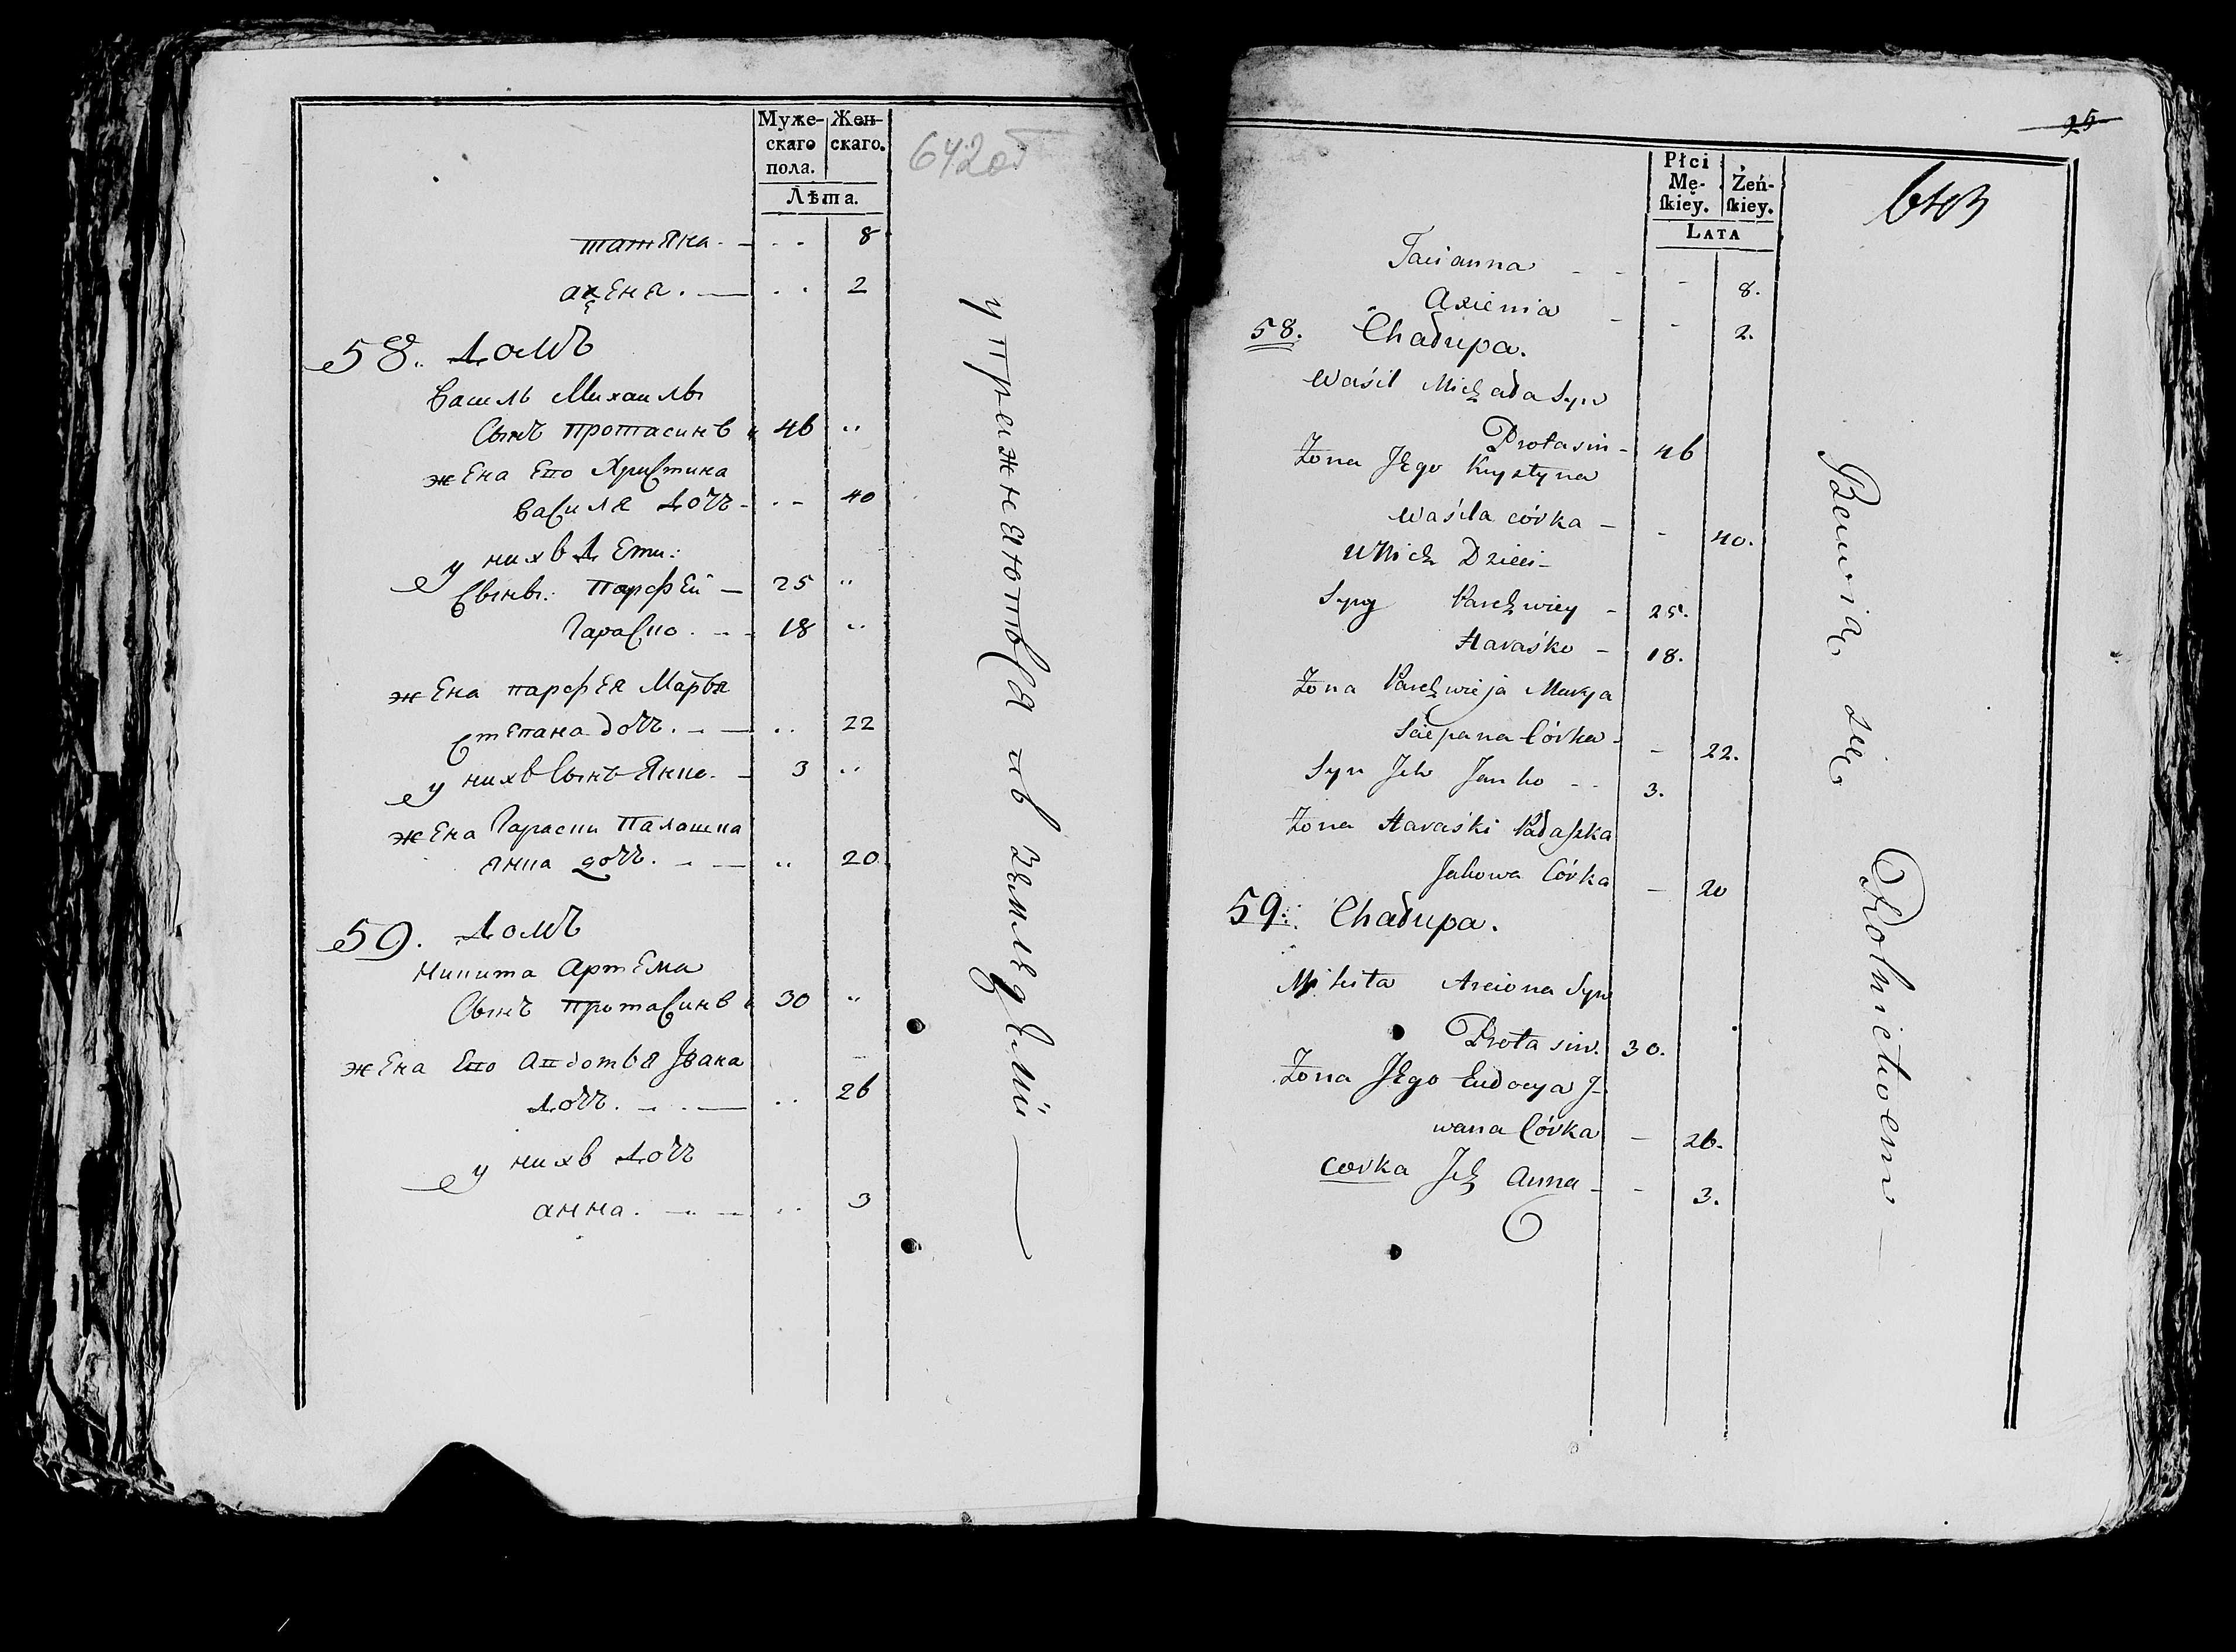 Муже-
скаго
пола.
Жен-
скаго.
Лѣта.
642об
татяна. - . . 8
аксеня. — . . 2
58. Домъ
Василь Михаилы
Сынъ Протасинъ „ 46 „
жена Его Христина
Василя дочь - . . 40
у нихъ дети:
Сыны: Парфей — 25 „
Гараско. - - 18 „
жена Парфея Марья
Степана дочь. - — . . 22
у нихъ Сынъ Янко. - 3 „
жена Гараски Палашка
Янка дочь. - — „ 20
59. Домъ
Никита Артема
Сынъ Протасинъ „ 30 „
жена Его Авдотья Јвана
дочь. - - — . . 26
у нихъ дочь
анна. - - — . . 3
упражняютъся въ земледѣлии —
25
643
Płci
Mę-
skiey.
Żeń-
skiey.
LATA
Tacianna - - - 8.
Axienia - - 2.
58. Chałupa.
Waśil Michała Syn
Protasin - 46
Żona Jego Krystyna
Waśila córka - - 40.
U Nich Dzieci -
Syny Parchwiey - 25.
Haraśko - 18.
Żona Parchwieja Marya
Sciepana Córka - - 22.
Syn Ich Janko - - 3.
Żona Haraśki Pałaszka
Jakowa Córka - 20
59. Chałupa.
Mikita Arciona Syn
Protasin. 30.
Żona Jego Eudocya J-
wana Córka - 26.
Corka Ich Anna - - 3.
Bawią się Rolnictwem —